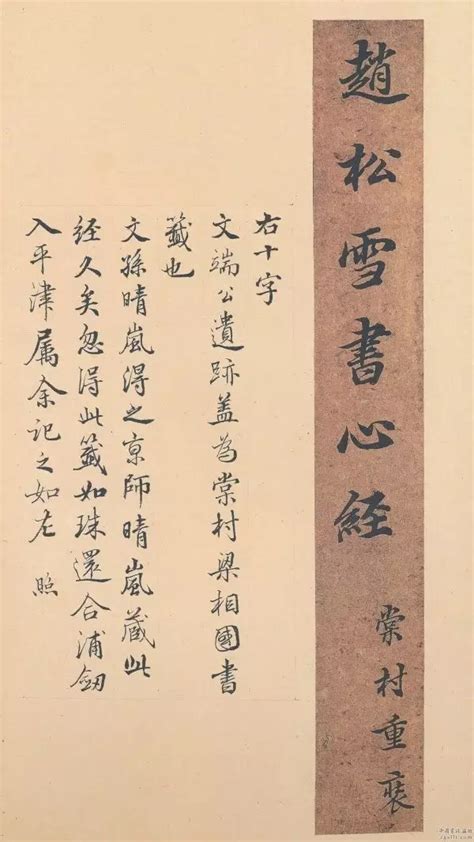 趙松雪書心経
棠村重裝
右十字
文端公遺跡盖為棠村梁相國書
籤也
文孫晴嵐得之京師晴嵐蔵此
経久矣忽得此籤如珠還合浦劔
入平津属余記之如左 照